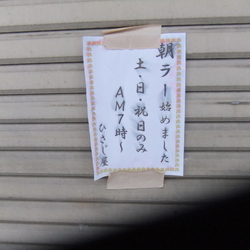 朝ラー始めました
土・日・祝日のみ
AM7時～
ひさし屋